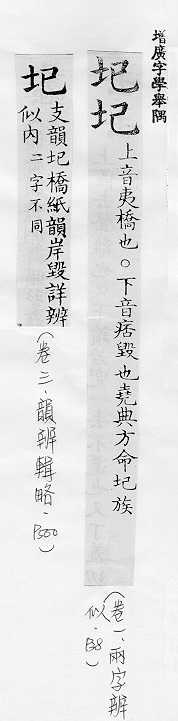 增廣字學舉隅
圯圮
上音夷橋也○下音痞毀也堯典方命圮族
(卷一、兩字辨
似·P38)
圯
支韻圯橋紙韻岸毀詳辨
似內二字不同
(卷三、韻辨輯略·)